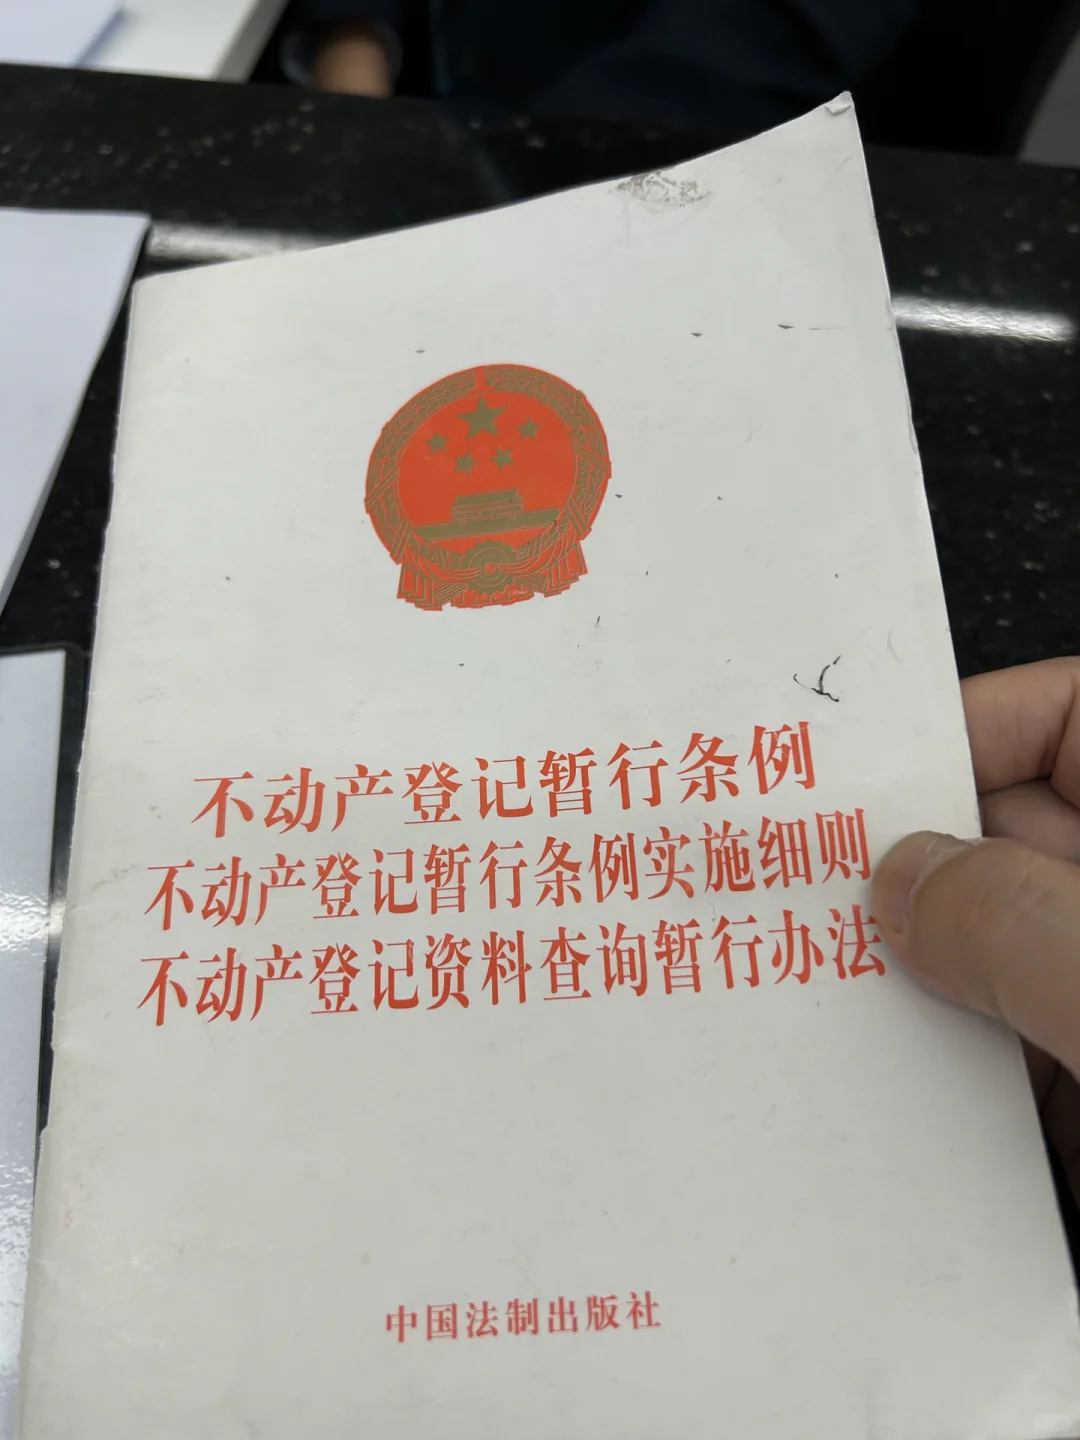 不动产登记暂行条例
不动产登记暂行条例实施细则
不动产登记资料查询暂行办法
中国法制出版社